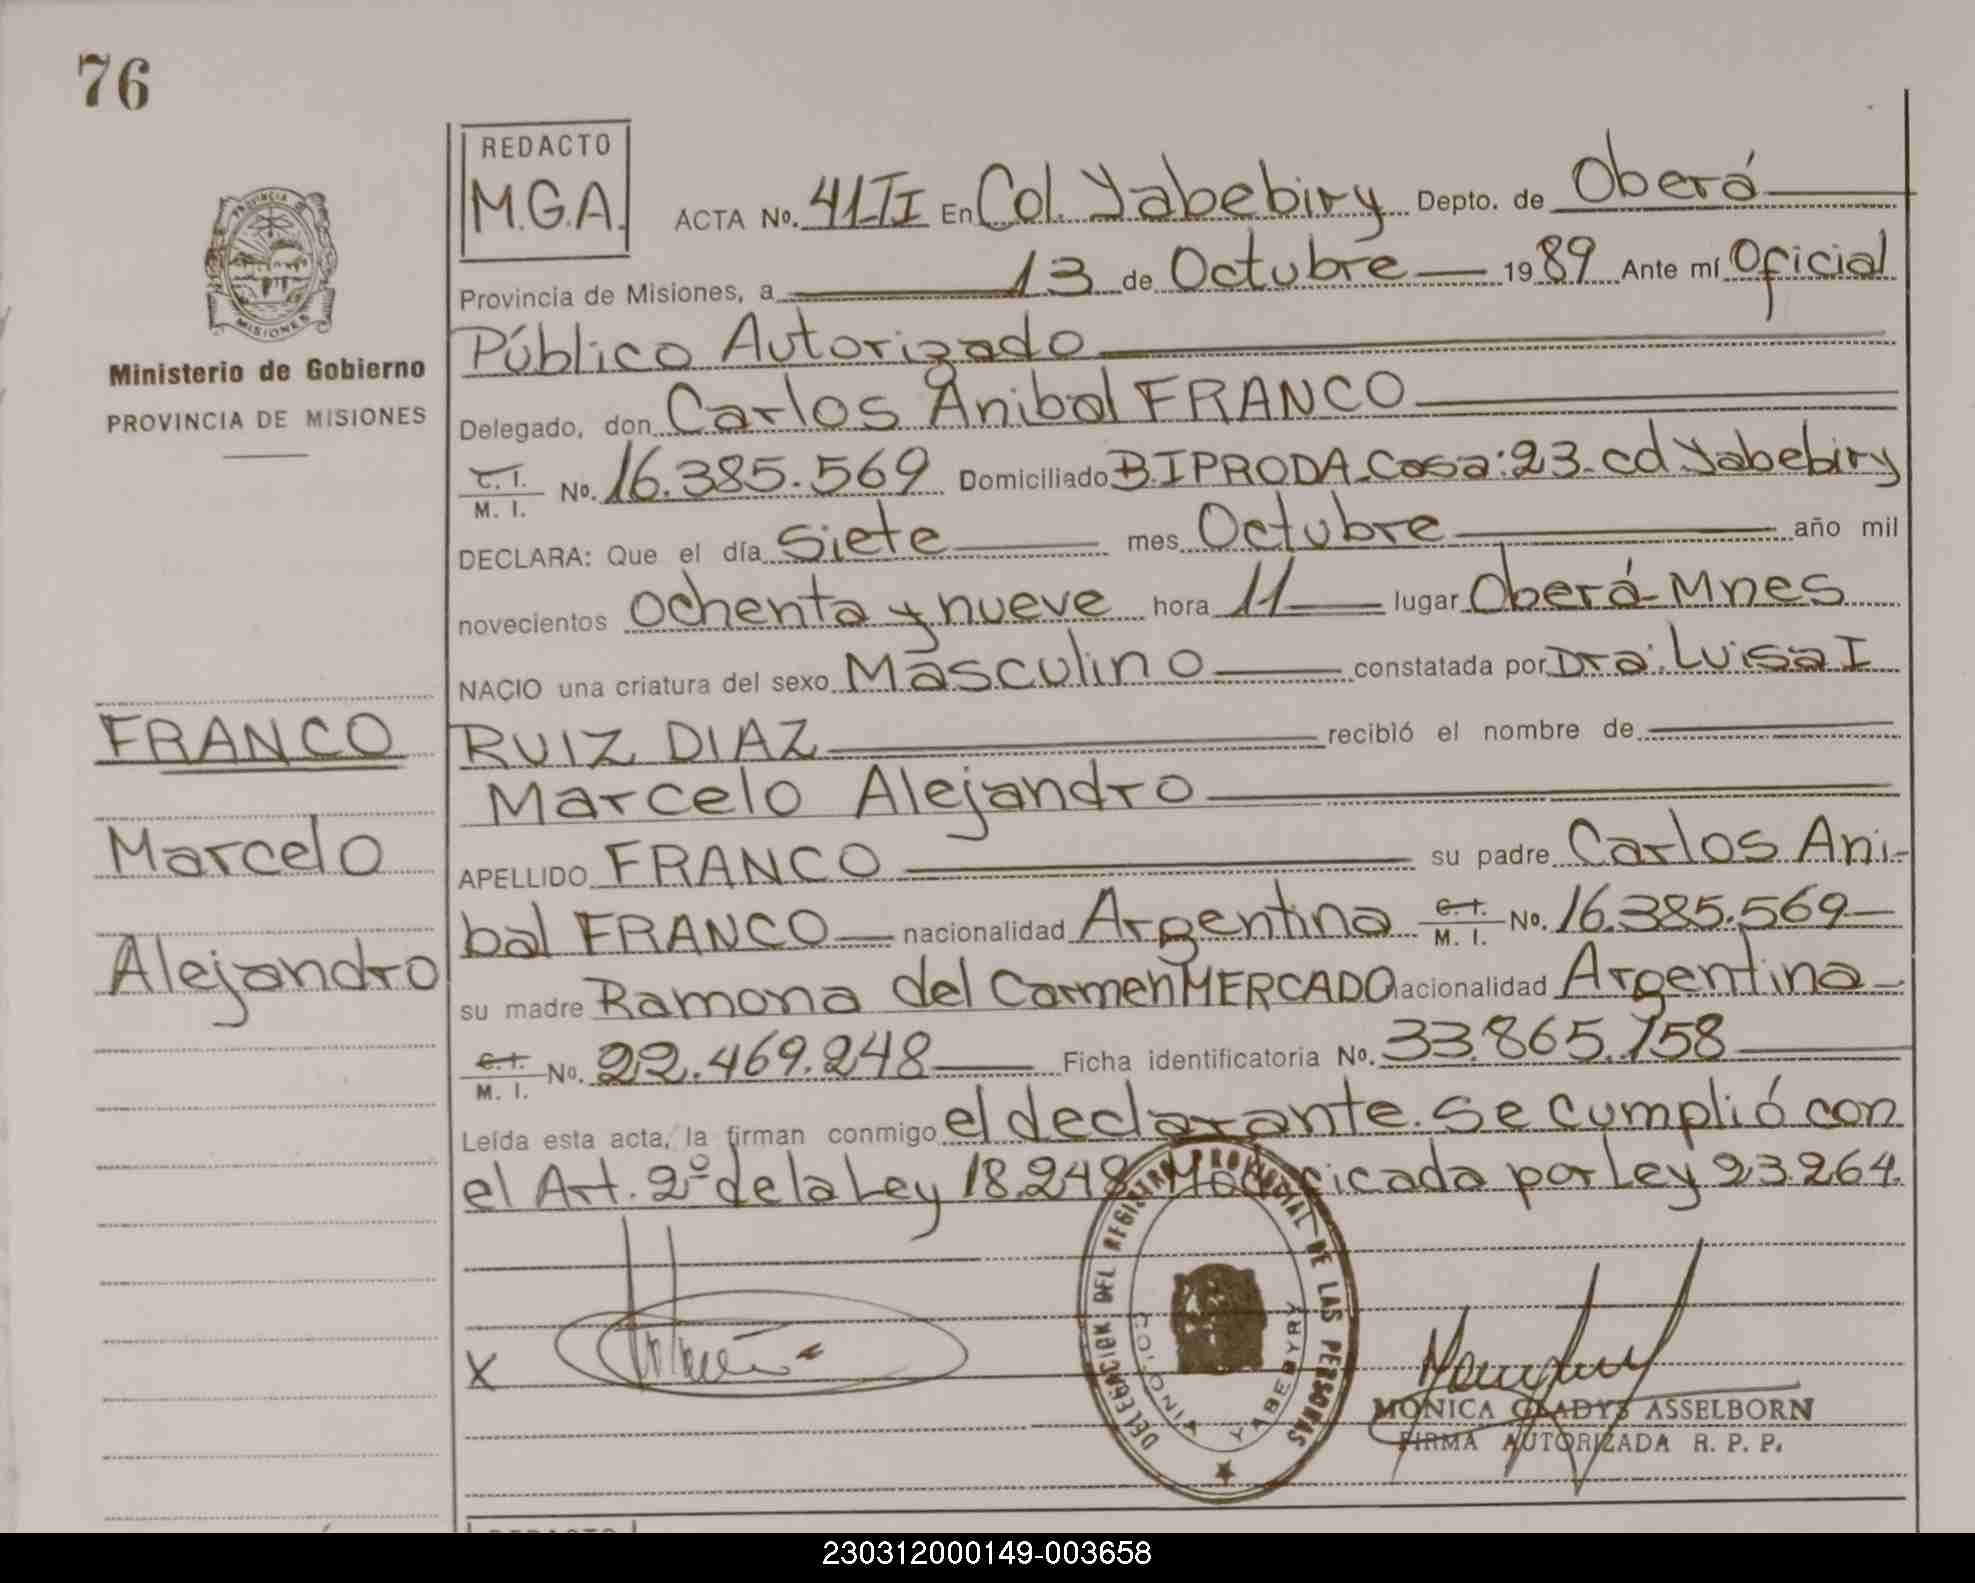 76
REDACTO
M.G.A.
PROVINCIA DE
MISIONES
Ministerio de Gobierno
PROVINCIA DE MISIONES
FRANCO
Marcelo
Alejandro
ACTA No. 41-TI En Col. Yabebiry Depto. de Oberá
Provincia de Misiones, a 13 de Octubre 1989 Ante mí Oficial
Público Autorizado
Delegado, don Carlos Anibal FRANCO
C. I. / M. I. No. 16.385.569 Domiciliado B.IPRODA-Casa:23-cd Yabebiry
DECLARA: Que el día siete mes Octubre año mil
novecientos ochenta y nueve hora 11 lugar Oberá-Mnes
NACIO una criatura del sexo Masculino constatada por Dra. Luisa I
RUIZ DIAZ recibió el nombre de
Marcelo Alejandro
APELLIDO FRANCO su padre Carlos Ani-
bal FRANCO nacionalidad Argentina C. I. / M. I. No. 16.385.569
su madre Ramona del Carmen MERCADO nacionalidad Argentina
C. I. / M. I. No. 22.469.248 Ficha identificatoria No. 33.865.158
Leída esta acta, la firman conmigo el declarante. Se cumplió con
el Art. 2º de la Ley 18.248 Modificada por Ley 23.264.
X
DELEGACION DEL REGISTRO PROVINCIAL DE LAS PERSONAS
COLONIA YABEBYRY
MONICA GLADYS ASSELBORN
FIRMA AUTORIZADA R. P. P.
REDACTO
230312000149-003658